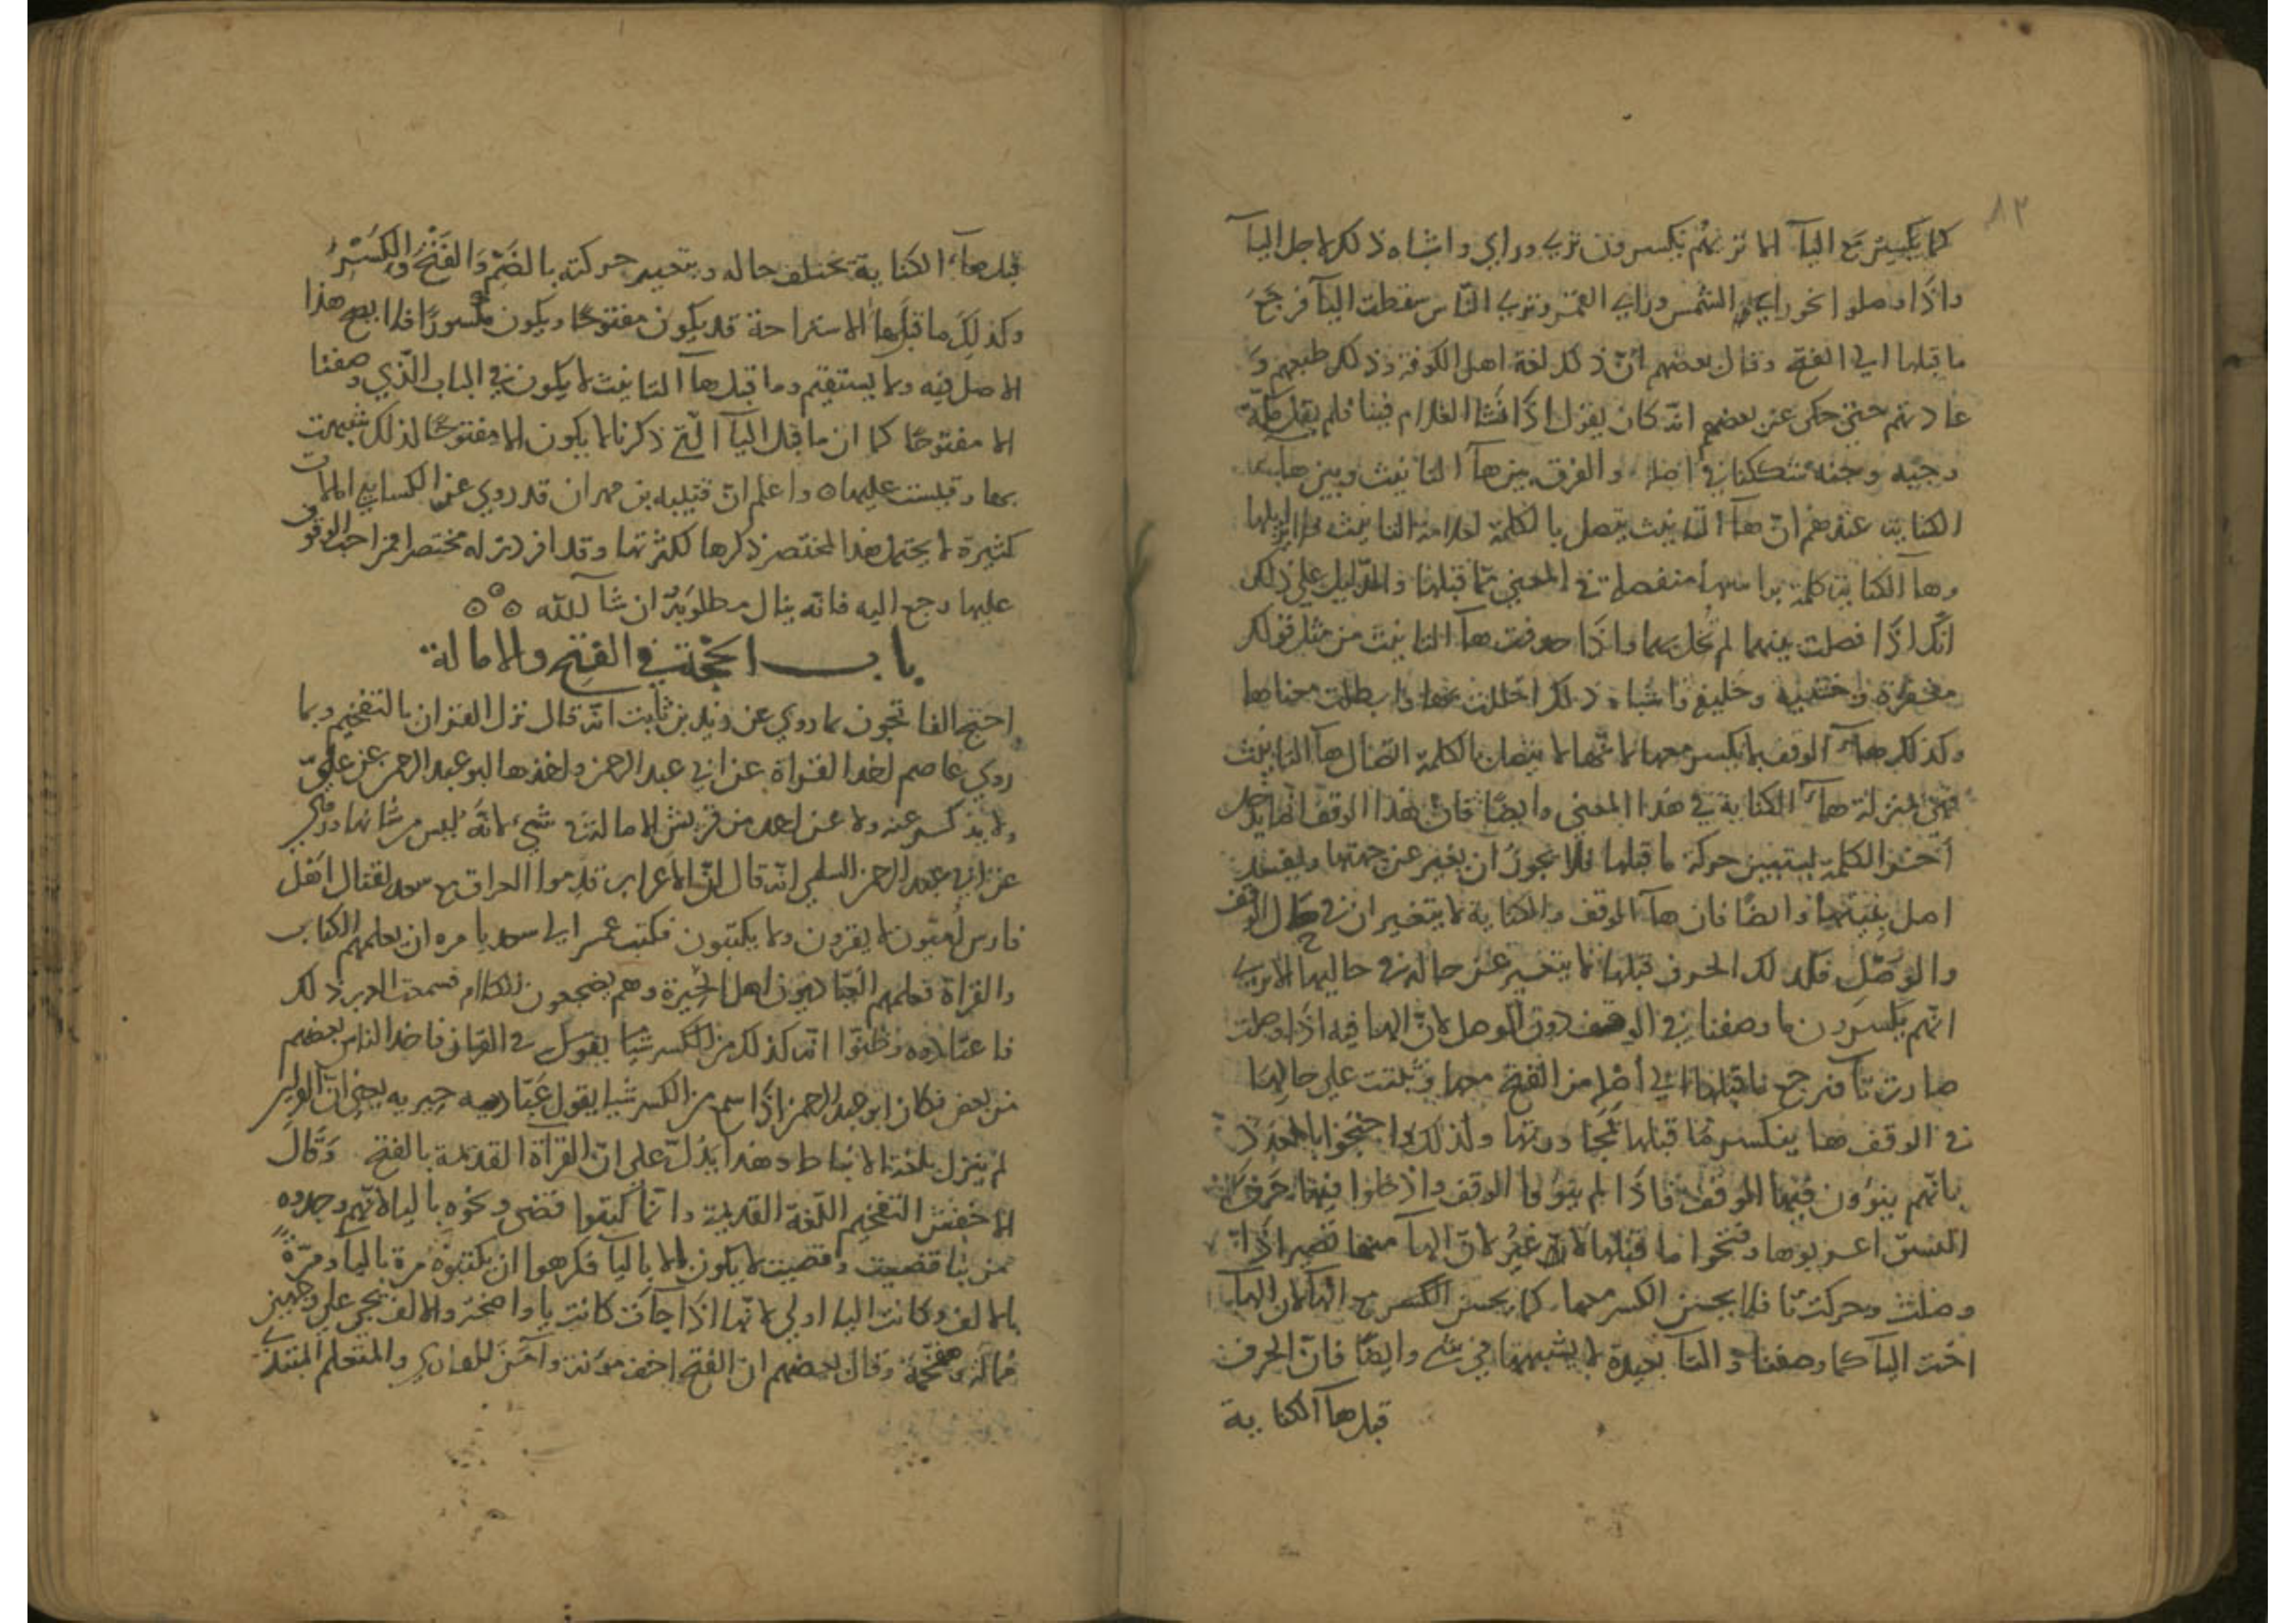 ٨٢
كما يكسر مع اليآ الا تريهم يكسرون نري وراي واشباه ذلك لاجل اليآ
واذا وصلوا نحو راي الشمس وراي القمر ونري الناس سقطت اليآ فرجع
ما قبلها الى الفتح وقال بعضهم ان ذلك لغة اهل الكوفة وذلك طبعهم و
عادتهم حتى حكى عن بعضهم انه كان يقول اذا نشا الغلام فينا فلم يقل
وجنه والفرق بين هآ التانيث وبين هآ
الكناية عندهم ان هآ التانيث يتصل بالكلمة لعلامة التانيث
وهآ الكناية كلمة براسها منفصلة في المعنى مما قبلها والدليل على ذلك
انك اذا فصلت بينهما لم تخل بهما واذا حذفت هآ التانيث من مثل قولك
مغفرة وخشية وخليفة واشباه ذلك اخللت بها وابطلت معناها
وكذلك هآ الوقف لا يكسر معها لانها لا يتصل بالكلمة اتصال هآ التانيث
فهي بمنزلة هآ الكناية في هذا المعنى وايضا فان هذا الوقف انما يدخل
آخر الكلمة ليتبين حركة ما قبلها فلا يجوز ان يغير عن جهتها ويفسد
اصل بنيتها وايضا فان هآ الوقف والكناية لا يتغيران في حال الوقف
والوصل فكذلك الحرف قبلها لا يتغير عن حاله في حاليها الا ترى
انهم يكسرون ما وصفنا في الوقف دون الوصل لان الها فيه اذا وصلت
صارت تآ فرجع ما قبلها الى أصله من الفتح معها وثبتت على حالها
في الوقف هآ ينكسر ما قبلها ولذلك احتجوا
بانهم ينوون فيها الوقف فاذا لم ينووا الوقف وادخلوا فيها حرف
النسق اعربوها وفتحوا ما قبلها لان الهآ منها تصير اذا
وصلت وحركت تا فلا يحسن الكسر معها كما يحسن الكسر مع الهآ لان الهآ
اخت اليآ كما وصفنا والتآ بعيدة لا يشبهها في شي وايضا فان الحرف
قبل هآ الكناية
قبل هآ الكناية تختلف حاله ويتغير حركته بالضم والفتح والكسر
وكذلك ما قبل هآ الاستراحة قد يكون مفتوحا ويكون مكسورا فلا يصح هذا
الاصل فيه ولا يستقيم وما قبل هآ التانيث لا يكون في الباب الذي وصفنا
الا مفتوحا كما ان ما قبل اليآ التي ذكرنا لا يكون الا مفتوحا لذلك شبهت
بها وقيست عليها ه واعلم ان قتيبه بن مهران قد روي عن الكسايي امالات
كثيرة لا يحتمل هذا المختصر ذكرها لكثرتها وقد افردت له مختصرا فمن احب الوقوف
عليها رجع اليه فانه ينال مطلوبه ان شآ الله ه ه ه
باب الحجة في الفتح والامالة
احتج الفاتحون بما روي عن زيد بن ثابت انه قال نزل القران بالتفخيم وبما
روي عاصم اخذ القراة عن ابي عبد الرحمن واخذها ابو عبد الرحمن عن علي
ولا يذكر عنه ولا عن احد من قريش الامالة في شيء لانه ليس من شانها وروي
عن ابي عبد الرحمن السلمي انه قال ان الاعراب قدموا العراق مع سعد لقتال اهل
فارس اميون لا يقرون ولا يكتبون فكتب عمر الى سعد يامره ان يعلمهم الكتاب
والقراة فعلمهم العباديون اهل الحيرة وهم يضجعون الكلام فسمعت العرب ذلك
فاعتادوه وظنوا انه كذلك من الكسر شيا يقول في القران فاخذ الناس بعضهم
من بعض فكان ابو عبد الرحمن اذا سمع من الكسر شيا يقول عباديه حيريه يعني ان القران
لم ينزل بلغة الانباط وهذا يدل على ان القراة القديمة بالفتح وقال
الاخفش التفخيم اللغة القديمة وانما كتبوا قضى ونحوه باليا لانهم وجدوه
من بنا قضيت وقضيت لا يكون الا باليآ فكرهوا ان يكتبوه مرة باليآ ومرة
بالالف وكانت اليا اولى لانها اذا جآت كانت يا واضحة والالف تجي على وجهين
ممالة ومفخمة وقال بعضهم ان الفتح اخف مؤنة وامكن للقاري والمتعلم المبتدي